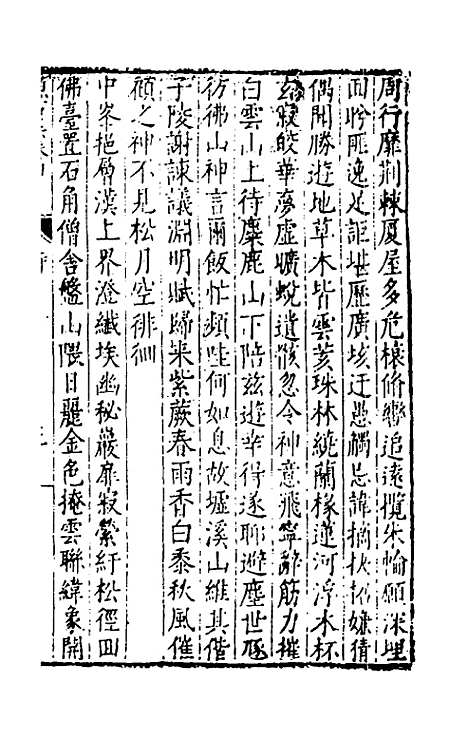 周行靡荆棘厦屋多危榱脩轡追遠攬朱輪願深埋
面矜匪逸足詎堪歷廣垓迂愚觸忌諱摘抉招嫌猜
偶開勝遊地草木皆雲荄珠林繞蘭椽蓮河浮木杯
玄寂皎華夢虛曠蛻遺骸忽令神意飛寧辭筋力摧
白雲山上待麋鹿山下陪茲遊幸得遂聊避塵世
彷彿山神言爾飯忙頻哇何如息故墟溪山維其偕
子陵謝諫議淵明賦歸來紫蕨春雨香白黍秋風催
顧之神不見松月空徘徊
中峯挹層漢上界澄纖埃幽秘巖扉寂縈紆松徑回
佛臺置石角僧舍盤山隈日麗金色掩雲聯緯象開